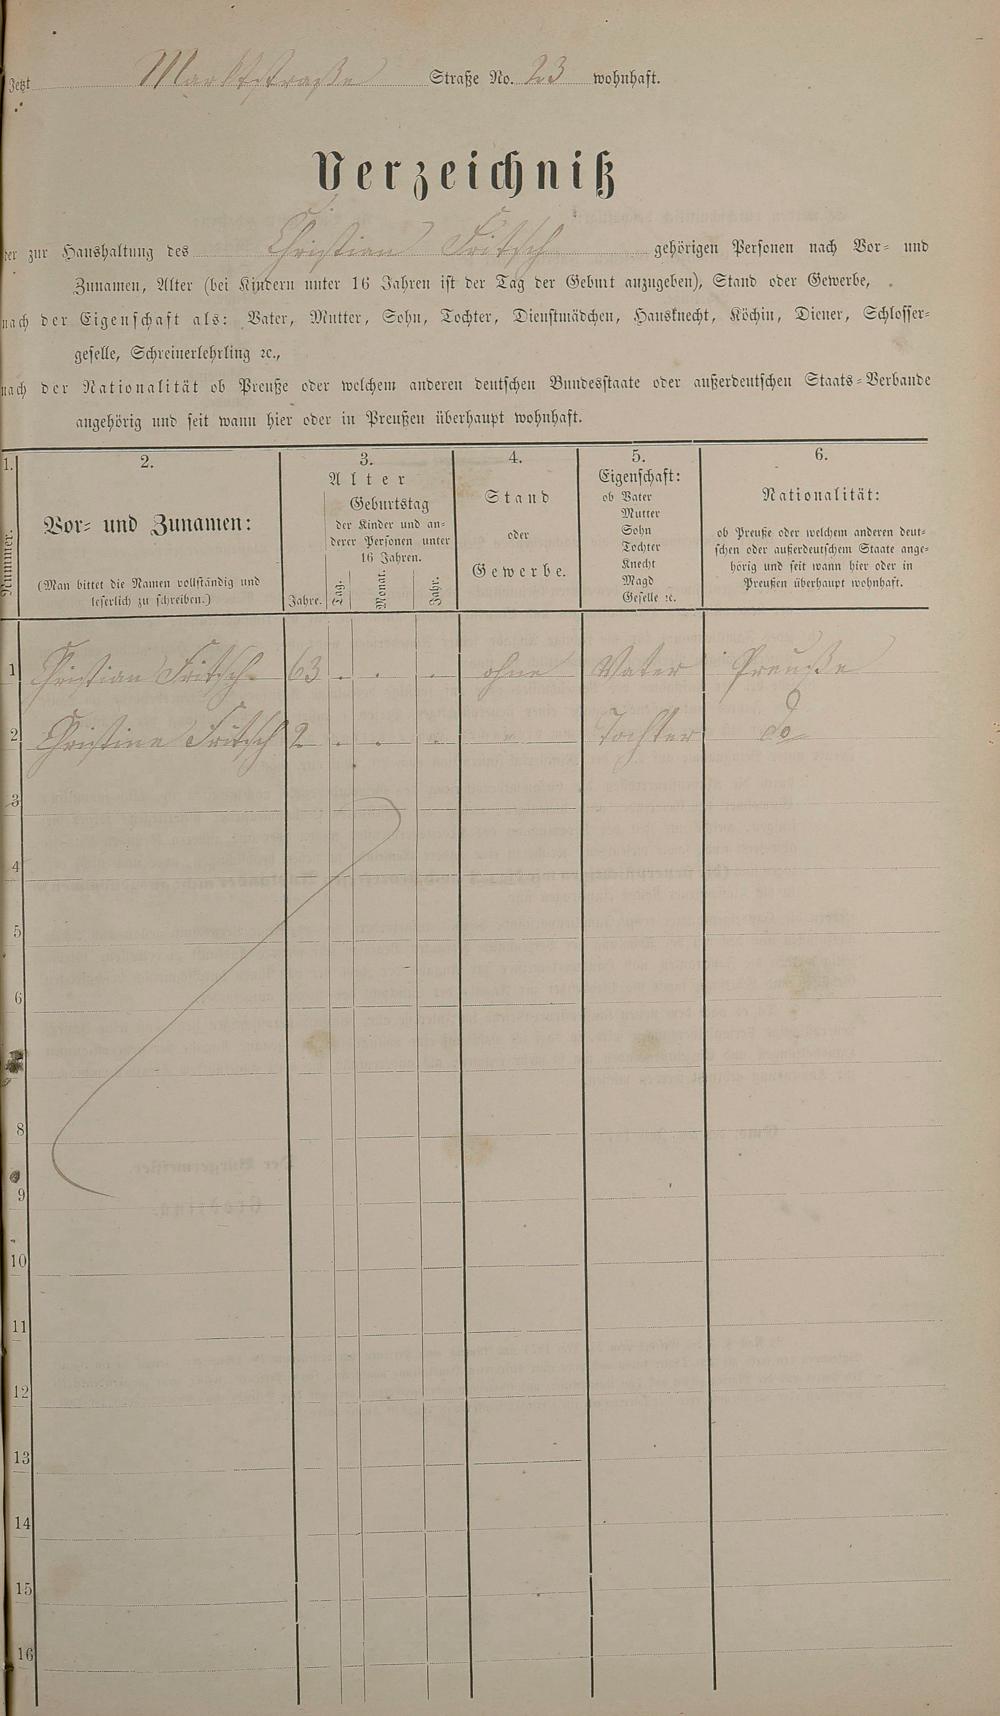 Jetzt Marktstraße Straße No. 23 wohnhaft.
Verzeichniß
der zur Haushaltung des Christian Fritsch gehörigen Personen nach Vor- und
Zunamen, Alter (bei Kindern unter 16 Jahren ist der Tag der Geburt anzugeben), Stand oder Gewerbe,
nach der Eigenschaft als: Vater, Mutter, Sohn, Tochter, Dienstmädchen, Hausknecht, Köchin, Diener, Schlosser-
geselle, Schreinerlehrling ꝛc.,
nach der Nationalität ob Preuße oder welchem anderen deutschen Bundesstaate oder außerdeutschen Staats-Verbande
angehörig und seit wann hier oder in Preußen überhaupt wohnhaft.
1. 2. 3. 4. 5. 6.
Nummer.
Vor- und Zunamen:
(Man bittet die Namen vollständig und
leserlich zu schreiben.)
Alter
Geburtstag
der Kinder und an-
derer Personen unter
16 Jahren.
Jahre. Tag. Monat. Jahr.
Stand
oder
Gewerbe.
Eigenschaft:
ob Vater
Mutter
Sohn
Tochter
Knecht
Magd
Geselle ꝛc.
Nationalität:
ob Preuße oder welchem anderen deut-
schen oder außerdeutschem Staate ange-
hörig und seit wann hier oder in
Preußen überhaupt wohnhaft.
1 Christian Fritsch 63 . . . ohne Vater Preuße
2 Christine Fritsch 2 . . . " Tochter do
3
4
5
6
8
9
10
11
12
13
14
15
16